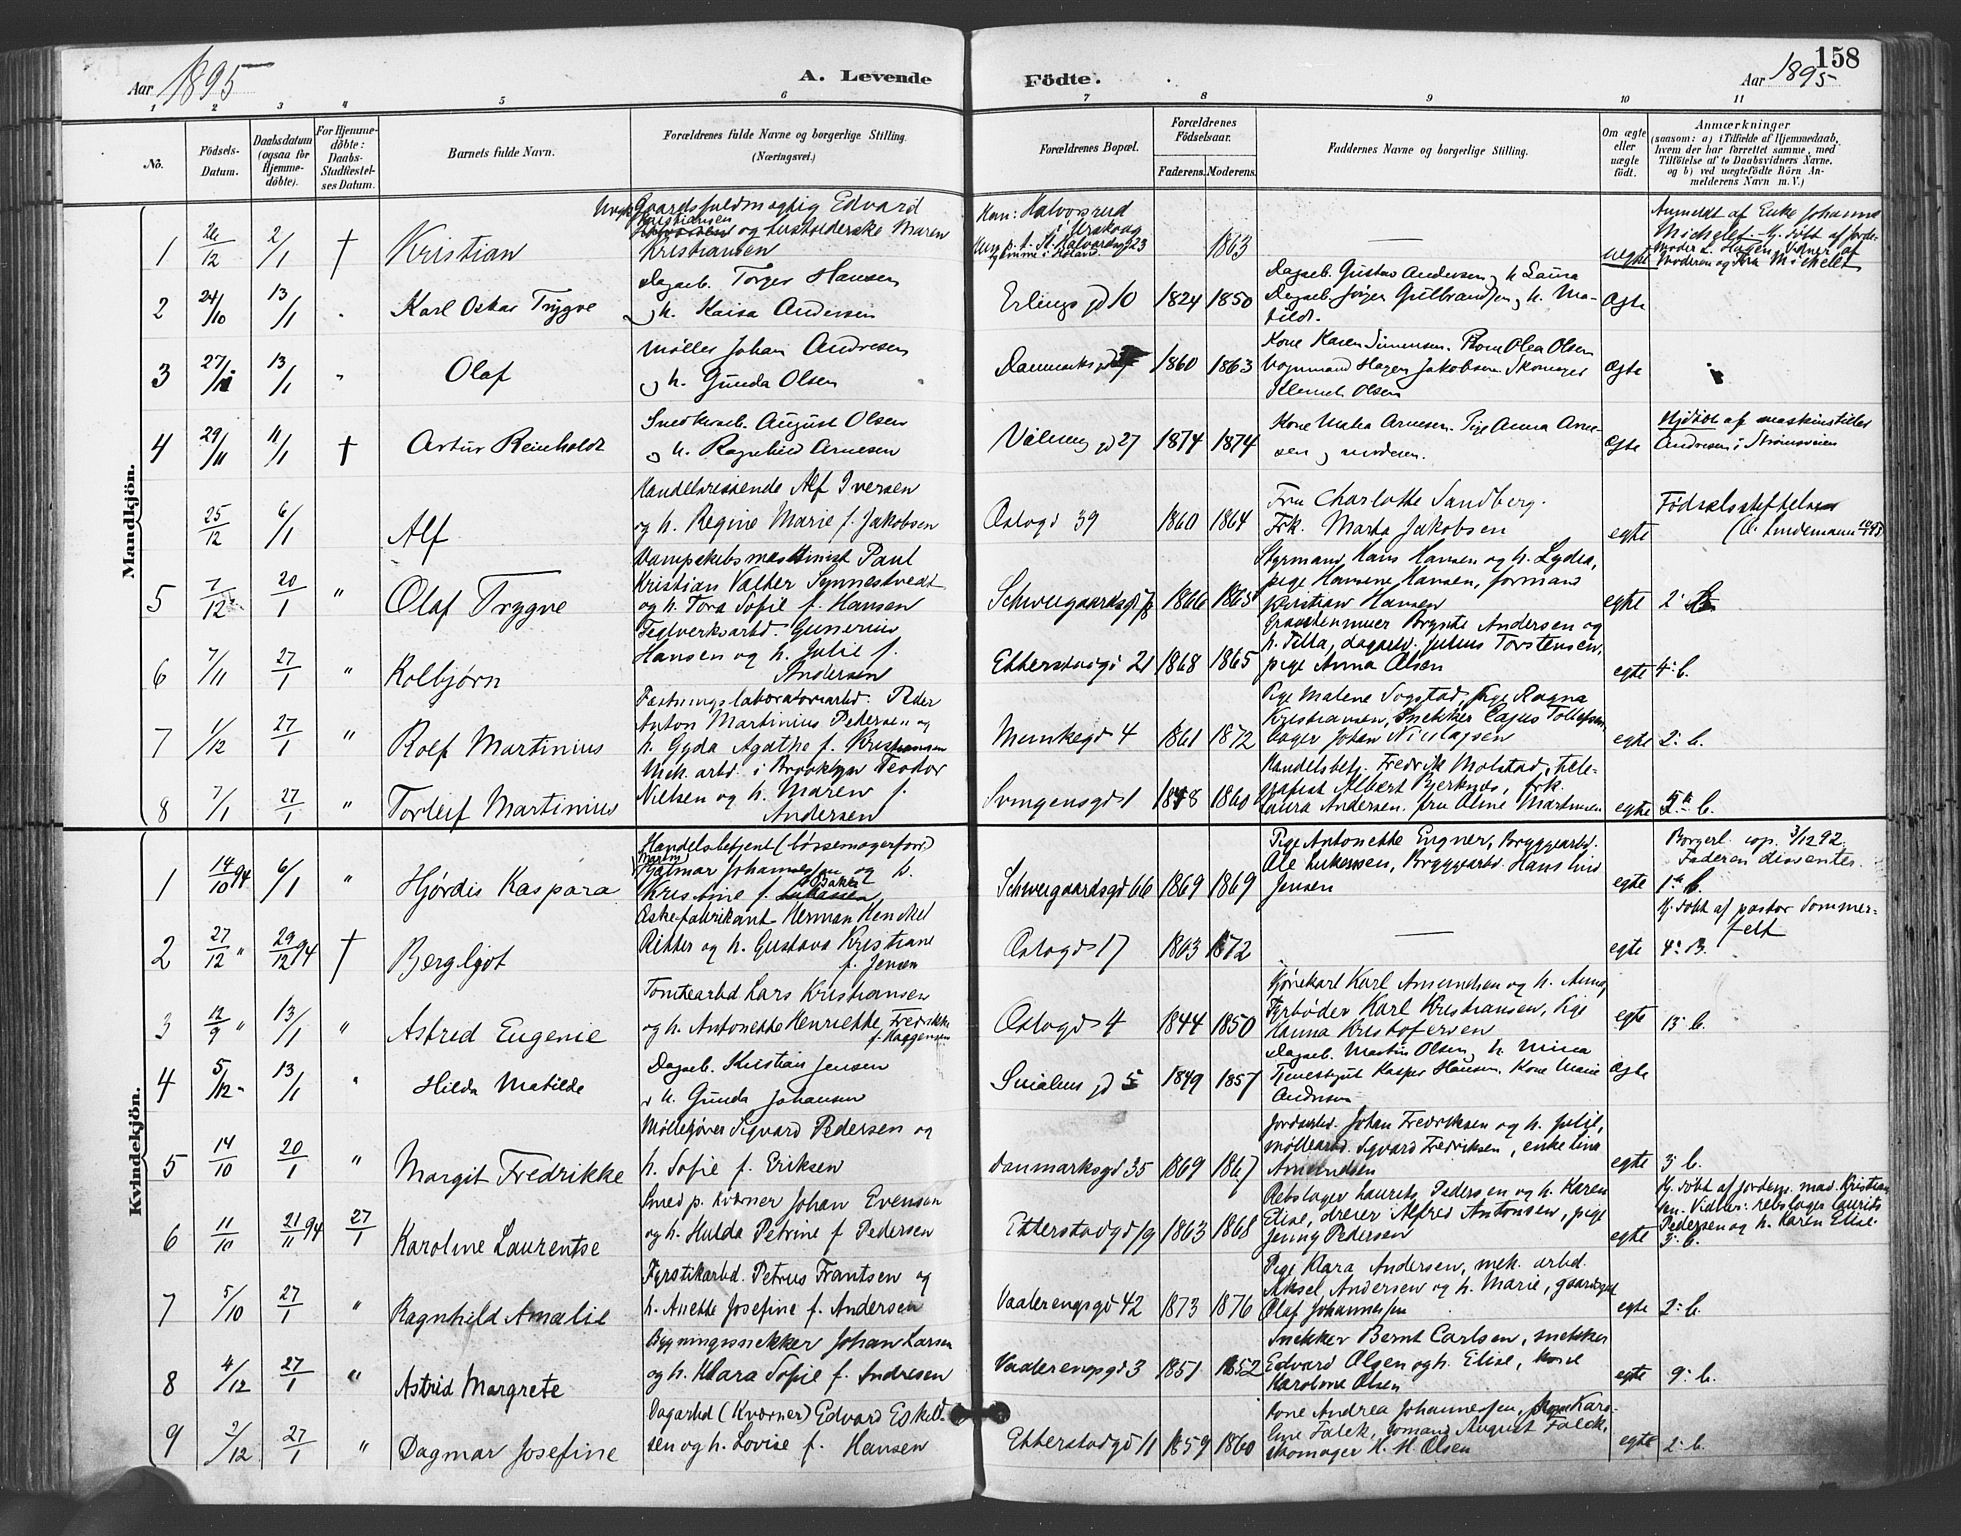 158
Aar 1895
A. Levende
Födte.
Aar 1895
1 2 3 4 5 6 7 8 9 10 11
No.
Födsels-
Datum.
Daabsdatum
(ogsaa for
Hjemme-
döbte).
For Hjemme-
döbte:
Daabs-
Stadfæstel-
ses Datum.
Barnets fulde Navn.
Forældrenes fulde Navne og borgerlige Stilling.
(Næringsvei.)
Forældrenes Bopæl.
Forældrenes
Födselsaar.
Faderens. Moderens.
Faddernes Navne og borgerlige Stilling.
Om ægte
eller
uægte
födt.
Anmærkninger
(saasom: a) i Tilfælde af Hjemmedaab,
hvem der har forrettet samme, med
Tilföielse af to Daabsvidners Navne.
og b) ved uægtefödte Börn An-
melderens Navn m. V.)
Mandkjön.
1 26/12 2/1 † Kristian
Gaardsfuldmægtig Edvard
Kristiansen
og husholderske Maren
Kristiansen
Halvorsrud
i Urskoug
1863
uegte
Anmeldt af Enke Johanne
Michelet. Hj. döbt af jorde-
moder
Moderen og Michelet
2 24/10 13/1 Karl Oskar Trygve
Dagarb. Torger Hansen
og h. Kaisa Andersen
Erlingsgd 10 1824 1850
Dagarb. Gustav Andersen og h. Laura
Dagarb. Jörgen Gulbrandsen og h. Ma-
tilde.
Ægte
3 27/11 13/1 " Olaf
Møller Johan Andresen
og h. Gunda Olsen
Danmarksgd 1860 1863
Kone Karen Simensen. Kone Olea Olsen
Vognmand Hagen Jakobsen Skomager
Olsen
Ægte
4 29/11 11/1 † Artur Reinholdt
Snedkerarb. August Olsen
og h. Ragnhild Arnesen
Vålereng gd 27 1874 1874
Kone Maha Arnesen. Pige Anna Arne-
sen og moderen.
Ægte
Hjdöbt af maskinstiller
Andresen i Strömsveien
25/12 6/1 Alf
Handelsreisende Alf Iversen
og h. Regine Marie f. Jakobsen
Oslogd 39 1860 1864
Fru Charlotte Sandberg.
Frk. Marta Jakobsen
egte
Födselsstiftelsen
5 7/12 20/1 " Olaf Trygve
Dampskibsmaskinist Paul
Kristian Valter Synnestvedt
og h. Tora Sofie f. Hansen
Schweigaardsgd 1866 1865
Styrmand Hans Hansen og h. Lydia,
pige Hansine Hansen, formand
Kristian Hansen
egte 2.
6 7/11 27/1 " Kolbjørn
Teglverksarbd. Gunerius
Hansen og h. Julie f.
Andersen
Etterstadgd 21 1868 1865
Graastenmurer Andersen og
h. Tilla, dagarb. Julius Torstensen,
pige Anna Olsen
egte 4. b.
7 1/12 27/1 " Rolf Martinius
Fæstningslaboratoriearbd. Peder
Anton Martinius Pedersen og
h. Gyda Agathe f. Kristiansen
Munkegd 4 1861 1872
Pige Malene Sogstad, pige Ragna
Kristiansen, snekker Cajus Tollefsen,
bager Johan Nicolaysen
egte 2. b.
8 7/1 27/1 " Torleif Martinius
Mek. arbd. i Brooklyn Teodor
Nielsen og h. Maren f.
Andersen
Svingensgd 1 1848 1860
Handelsbetj. Fredrik Molstad, tele-
grafist Albert Bjerknæs, frk.
Laura Andersen. fru Aline Martinsen
egte 5te b.
Kvindekjön.
1 14/10 94 6/1 " Hjørdis Kaspara
Handelsbetjent (bøssemagerforr.)
Hjalmar Johannessen og h.
Kristine f. Baker
Schweigaardsgd 66 1869 1869
Pige Antonette Engner, Bryggearbd.
Ole Eriksen, Bryggearbd Hans
Jensen
egte
Borgerl. cop. 3/12 92
Faderen dissenter.
1te b.
2 27/12 " 29/12 94 † Bergljot
Æskefabrikant Herman Henckel
Ritter og h. Gustava Kristiane
f. Jensen
Oslogd 17 1863 1872
egte
Hj. döbt af pastor Sommer-
felt
4. B.
3 12/9 " 13/1 " Astrid Eugenie
Tomtearbd Lars Kristiansen
og h. Antonette Henriette Fredrikke
f. Haagensen
Oslogd 4 1844 1850
Kjørekarl Karl Amundsen og h. Anna,
Fyrbøder Karl Kristiansen, Pige
Hanna Kristofersen
egte 13 b.
4 5/12 " 13/1 " Hilda Matilde
Dagarb. Kristian Jensen
og h. Gunda Johansen
gd 5 1849 1857
Dagarb. Martin Olsen, h. Mina
Tjenestegut Kasper Hansen. Kone Marie
Andersen
Ægte
5 14/10 20/1 " Margit Fredrikke
Møllekjører Sigvard Pedersen og
h. Sofie f. Eriksen
Danmarksgd 35 1869 1867
Jordarbd. Johan Fredriksen og h. Julie,
møllearbd. Sigvard Fredriksen, enke Lina
Amundsen
egte 3. b.
6 11/10 21/11 94 27/1 Karoline Laurentse
Smed p. Kværner Johan Evensen
og h. Hulda Petrine f Pedersen
Etterstadgd 19 1863 1868
Rebslager Laurits Pedersen og h. Karen
Elise, dreier Alfred Antonsen, pige
Jenny Pedersen
egte
Hj. döbt af jordem. mad. Kristian-
sen. Vidner: rebslager Laurids
Pedersen og h. Karen Elise.
3. b.
7 5/10 27/1 " Ragnhild Amalie
Fyrstikarbd. Petrus Frantsen og
h. Anette Josefine f. Andersen
Vaalerengsgd 42 1873 1876
Pige Klara Andersen, mek. arbd.
Aksel Andersen og h. Marie, gaardsgut
Olaf Johannessen
egte 2. b.
8 4/12 27/1 " Astrid Margrete
Bygningssnekker Johan Larsen
og h. Klara Sofie f. Andresen
Vaalerengsgd 3 1851 1852
Snekker Bernt Carlsen, snekker
Edvard Olsen og h. Elise, kone
Karoline Olsen
egte 9. b.
9 2/12 27/1 " Dagmar Josefine
Dagarbd (Kværner) Edvard Eskild-
sen og h. Lovise f. Hansen
Etterstadgd 11 1859 1860
Kone Andrea Johannessen, Kone Karo-
line Falck, August Falck,
skomager H. H. Olsen
egte 2. b.